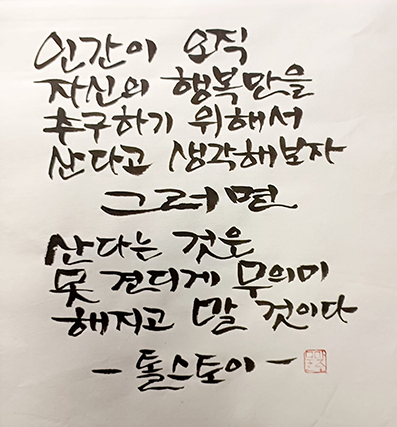 인간이 오직
자신의 행복만을
추구하기 위해서
산다고 생각해보자
그러면
산다는 것은
못 견디게 무의미
해지고 말 것이다
- 톨스토이 -